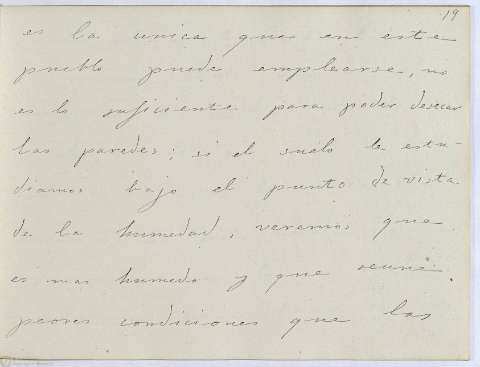 19
es la unica que en este
pueblo puede emplearse, no
es lo suficiente para poder desecar
las paredes; si el suelo le estu-
diamos bajo el punto de vista
de la humedad, veremos que
es mas humedo y que reune
peores condiciones que las